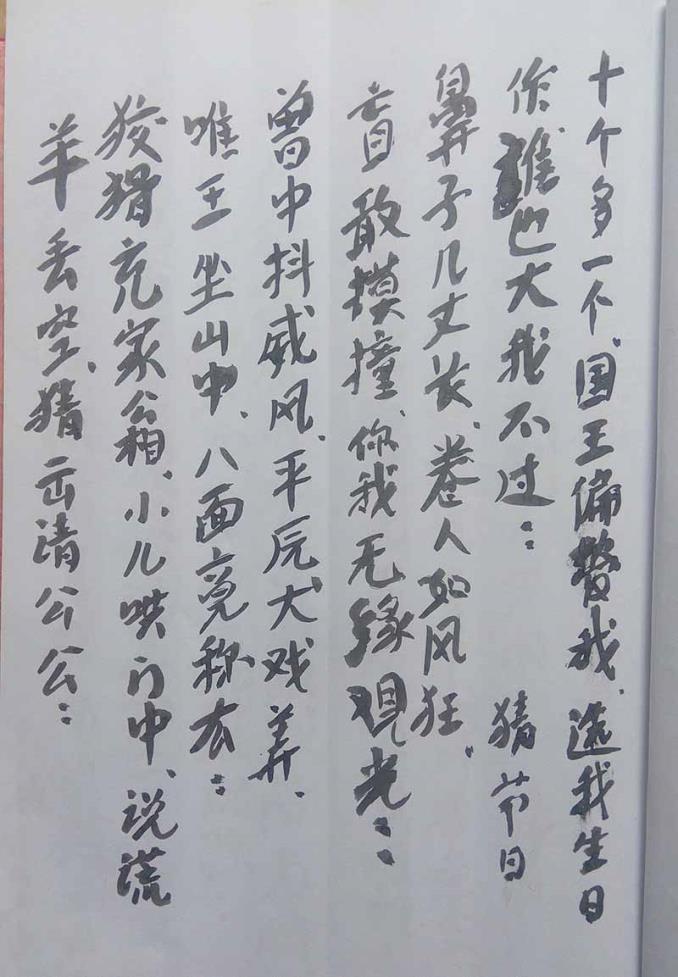 十个多一个、国王偏赞我、送我生日
你谁也大我不过：
猜节日
鼻子几丈长、卷人如风狂、
盲敢摸撞、你我无缘观光：
曽中抖威风、平辰大戏弄、
唯王坐山中、八面亮称右：
狡猾充家公相、小儿哄门中、说谎
羊丢空、猜岳清公公：